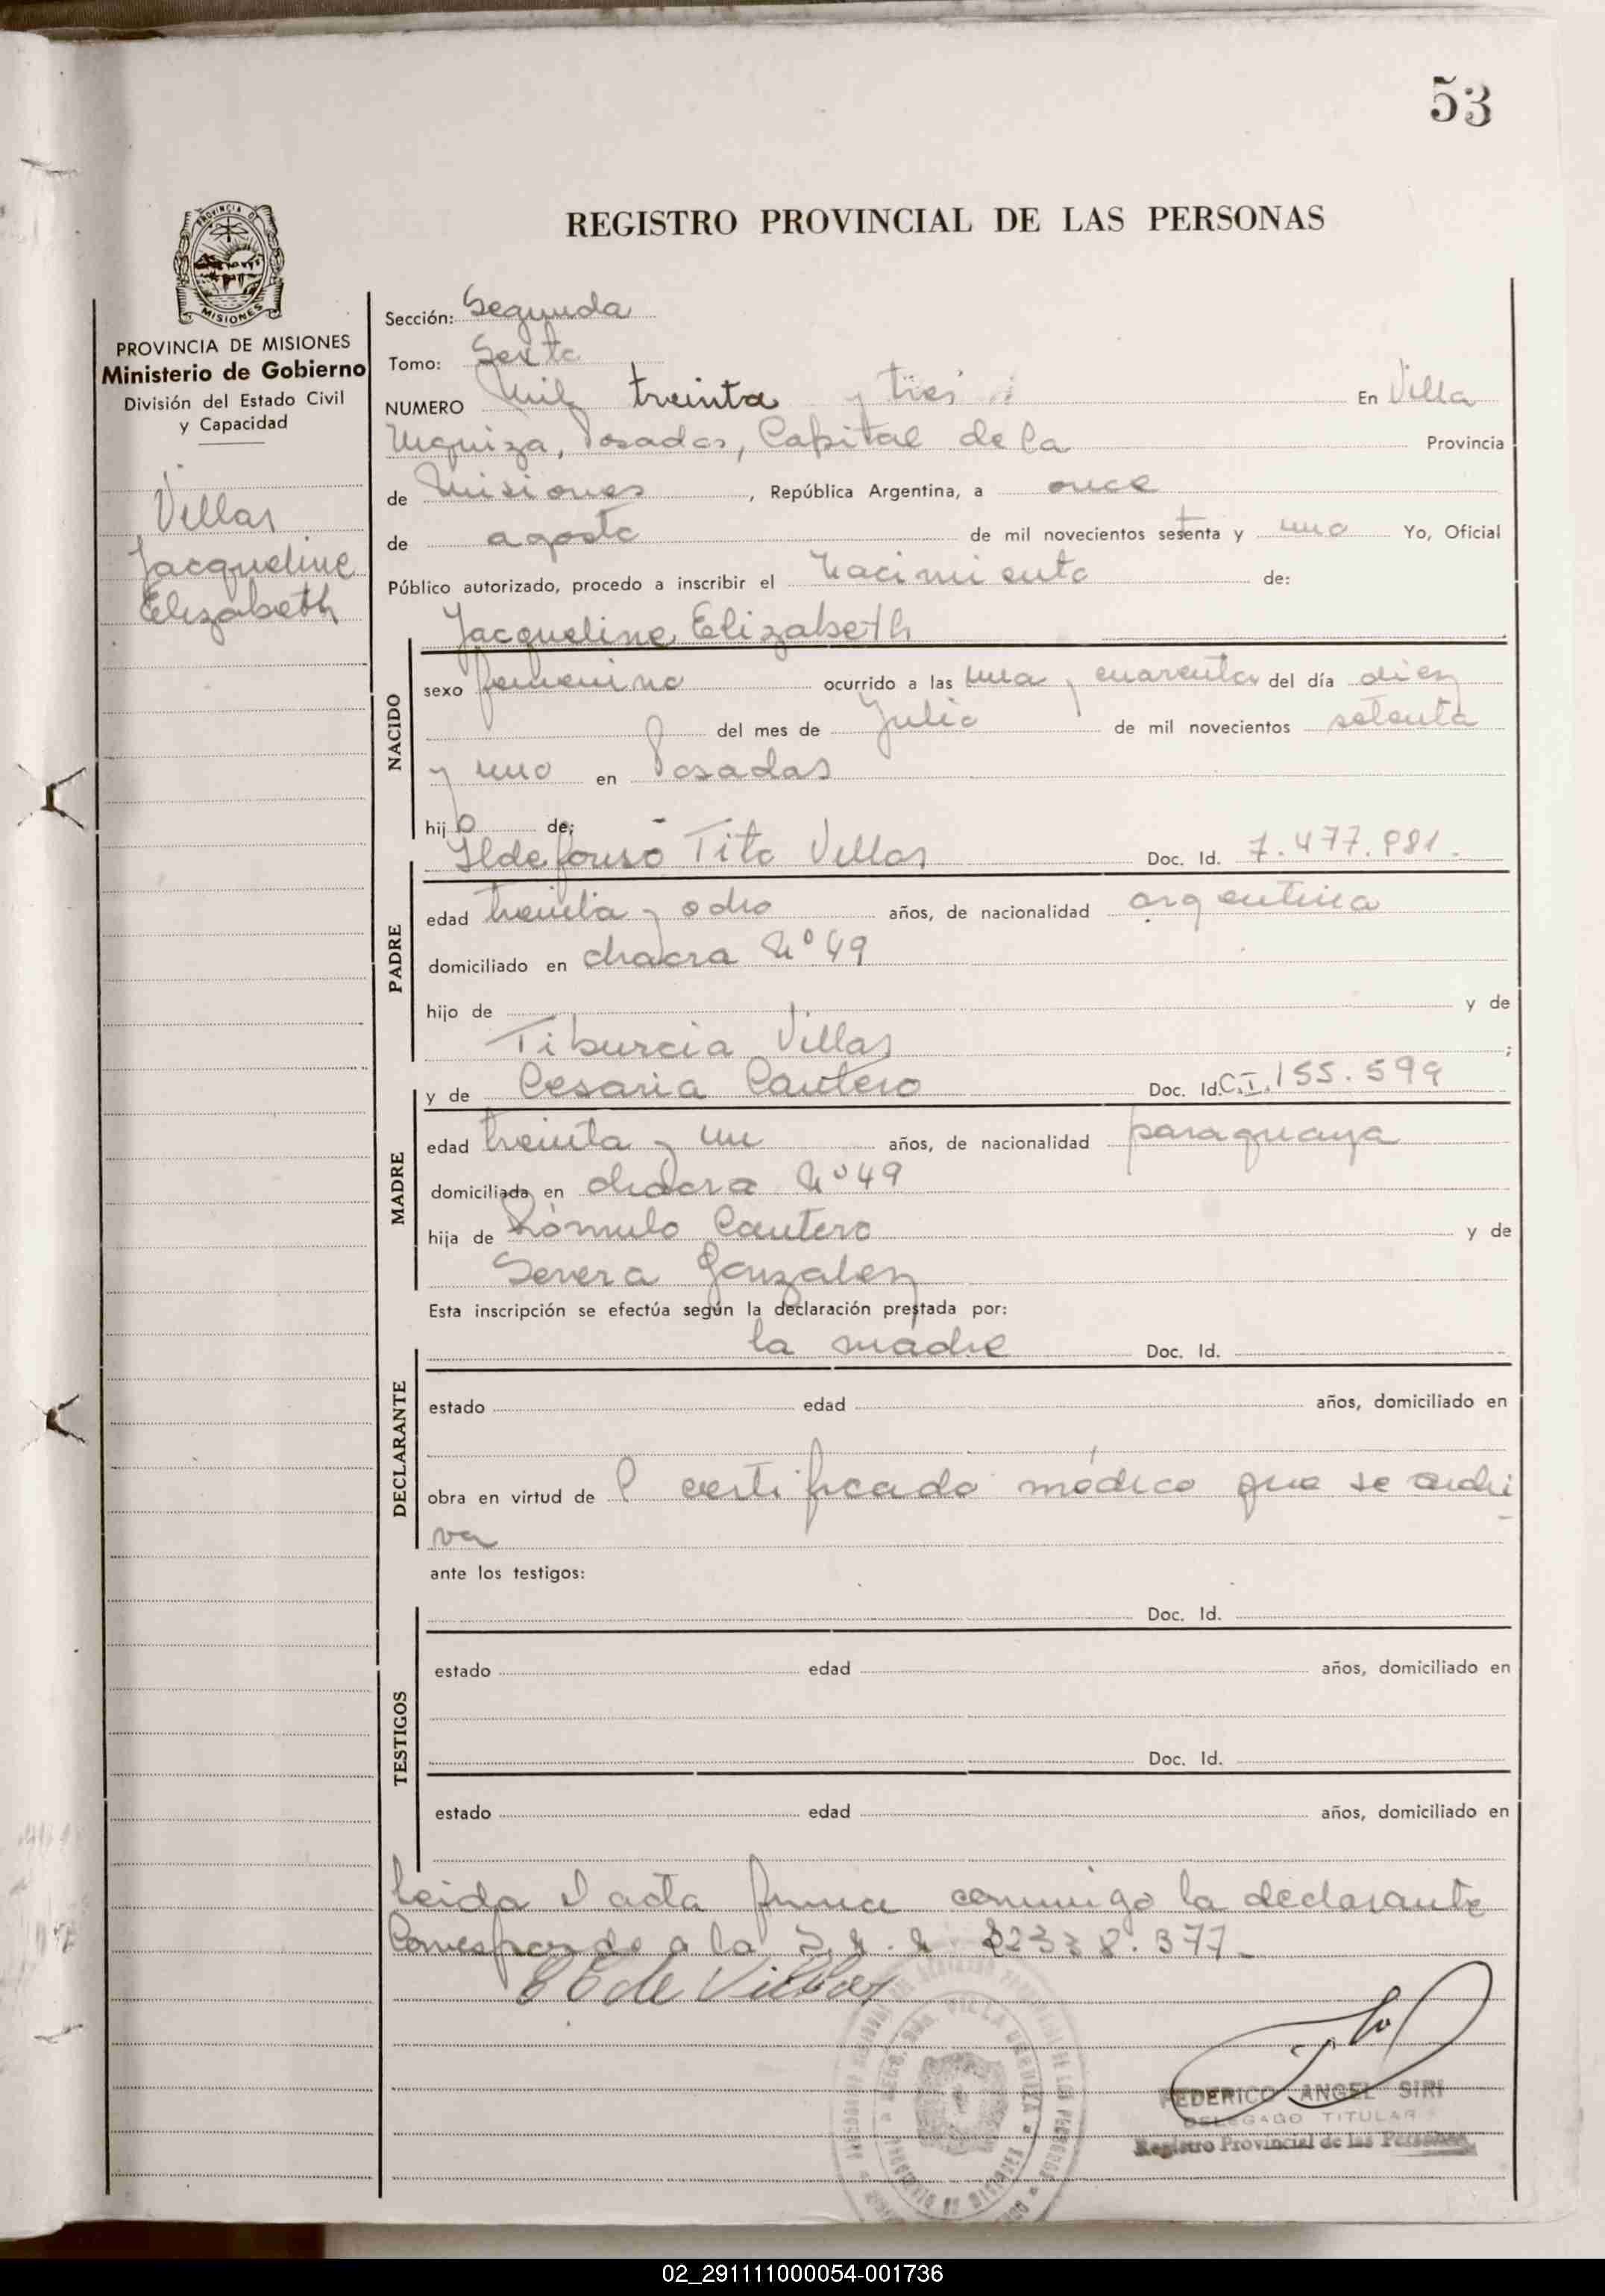 53
REGISTRO PROVINCIAL DE LAS PERSONAS
PROVINCIA DE MISIONES
Ministerio de Gobierno
División del Estado Civil
y Capacidad
Villar
Jacqueline
Elizabeth
Sección: Segunda
Tomo: Sexto
NUMERO Mil treinta y tres En Villa
Urquiza, Posadas, Capital de la Provincia
de Misiones, República Argentina, a once
de agosto de mil novecientos setenta y uno Yo, Oficial
Público autorizado, procedo a inscribir el Nacimiento de:
Jacqueline Elizabeth
NACIDO
sexo femenino ocurrido a las una y cuarenta del día diez
del mes de Julio de mil novecientos setenta
y uno en Posadas
hijo de:
Ildefonso Tito Villar Doc. Id. 7.477.981.
PADRE
edad treinta y ocho años, de nacionalidad argentina
domiciliado en chacra Nº 49
hijo de y de
Tiburcia Villar ;
y de Cesaria Cantero Doc. Id. C.I. 155.599
MADRE
edad treinta y un años, de nacionalidad paraguaya
domiciliada en chacra Nº 49
hija de Rómulo Cantero y de
Severa Gonzalez
Esta inscripción se efectúa según la declaración prestada por:
la madre Doc. Id.
DECLARANTE
estado edad años, domiciliado en
obra en virtud de l certificado médico que se archi
va
ante los testigos:
Doc. Id.
TESTIGOS
estado edad años, domiciliado en
Doc. Id.
estado edad años, domiciliado en
Leida el acta firma conmigo la declarante
Corresponde a la
de Villar
FEDERICO ANGEL SIRI
DELEGADO TITULAR
Registro Provincial de las Personas
02_291111000054-001736